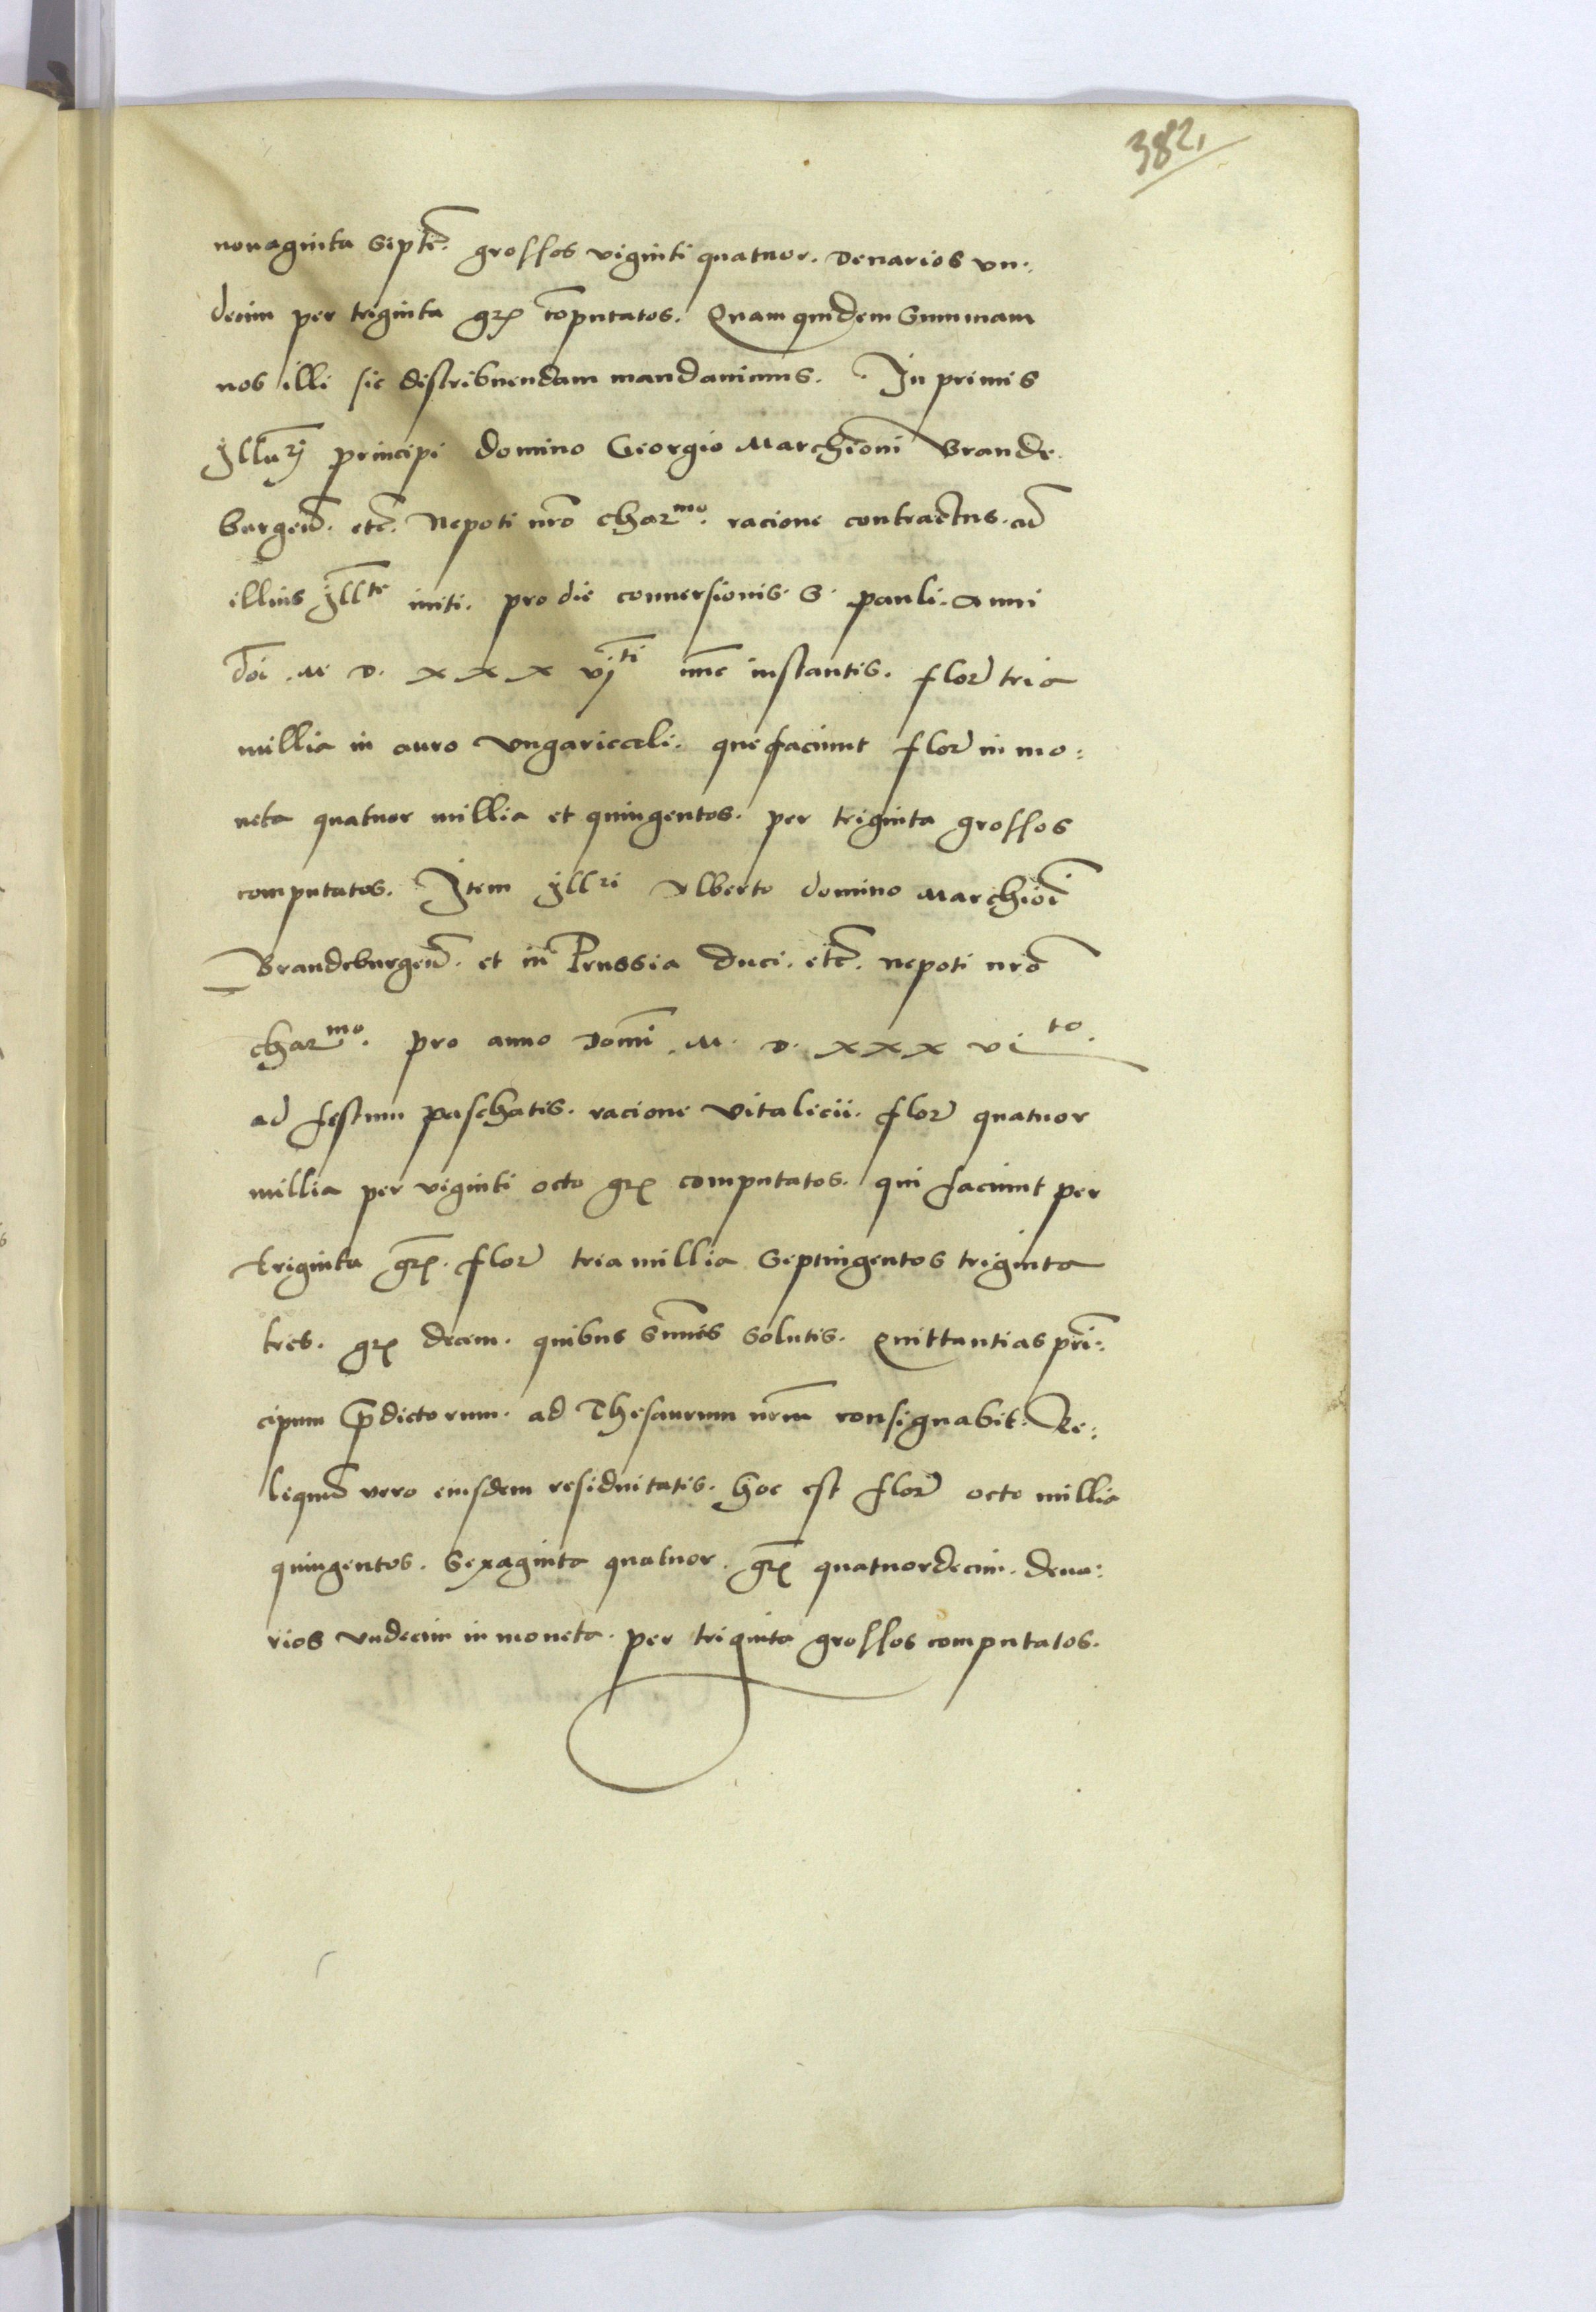 382,
nonaginta Septē. grossos viginti quatuor. denarios vn:
decim per triginta grꝭ cōputatos. Quam quidem Summam
nos illi sic distribuendam mandauimus. In primis
Jllurj principi domino Georgio Marchioni Brande
burgeñ. etc̄. Nepoti nrō charmo. racione contractus. ad
illius Jllte initi. pro die conuersionis. S. pauli. Anni
dōi .M. D. XXX vjti nūc instantis. flor tria
millia in auro Vngaricali. que faciunt flor in mo:
neta quatuor millia et quingentos. per triginta grossos
computatos. Item Jllri Alberto domino Marchiōi
Brandeburgeñ. et in Prussia Duci. etc̄. nepoti nrō
charmo. pro anno Domi .M. D. XXX vito.
ad festum paschatis. racione Vitalicii. flor quatuor
millia per viginti octo grꝭ computatos. qui faciunt per
triginta grꝭ. flor tria millia Septingentos triginta
tres. grꝭ decem. quibus Sūmis Solutis. Quittantias prī:
cipum p̄dictorum. ad Thesaurum nrm̄ consignabit. Re:
liquū vero eiusdem residuitatis. hoc est flor octo millia
quingentos. Sexaginta quatuor. grꝭ quatuordecim. dena:
rios vndecim in moneta. per triginta grossos computatos.